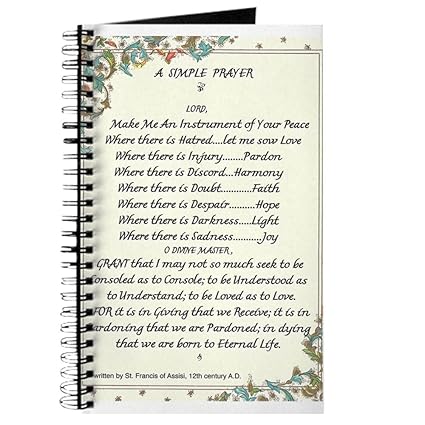 A SIMPLE PRAYER
LORD,
Make Me An Instrument of Your Peace
Where there is Hatred....let me sow Love
Where there is Injury........Pardon
Where there is Discord...Harmony
Where there is Doubt............Faith
Where there is Despair..........Hope
Where there is Darkness.....Light
Where there is Sadness..........Joy
O DIVINE MASTER,
GRANT that I may not so much seek to be
onsoled as to Console; to be Understood as
to Understand; to be Loved as to Love.
FOR it is in Giving that we Receive; it is in
ardoning that we are Pardoned; in dying
that we are born to Eternal Life.
written by St. Francis of Assisi, 12th century A.D.